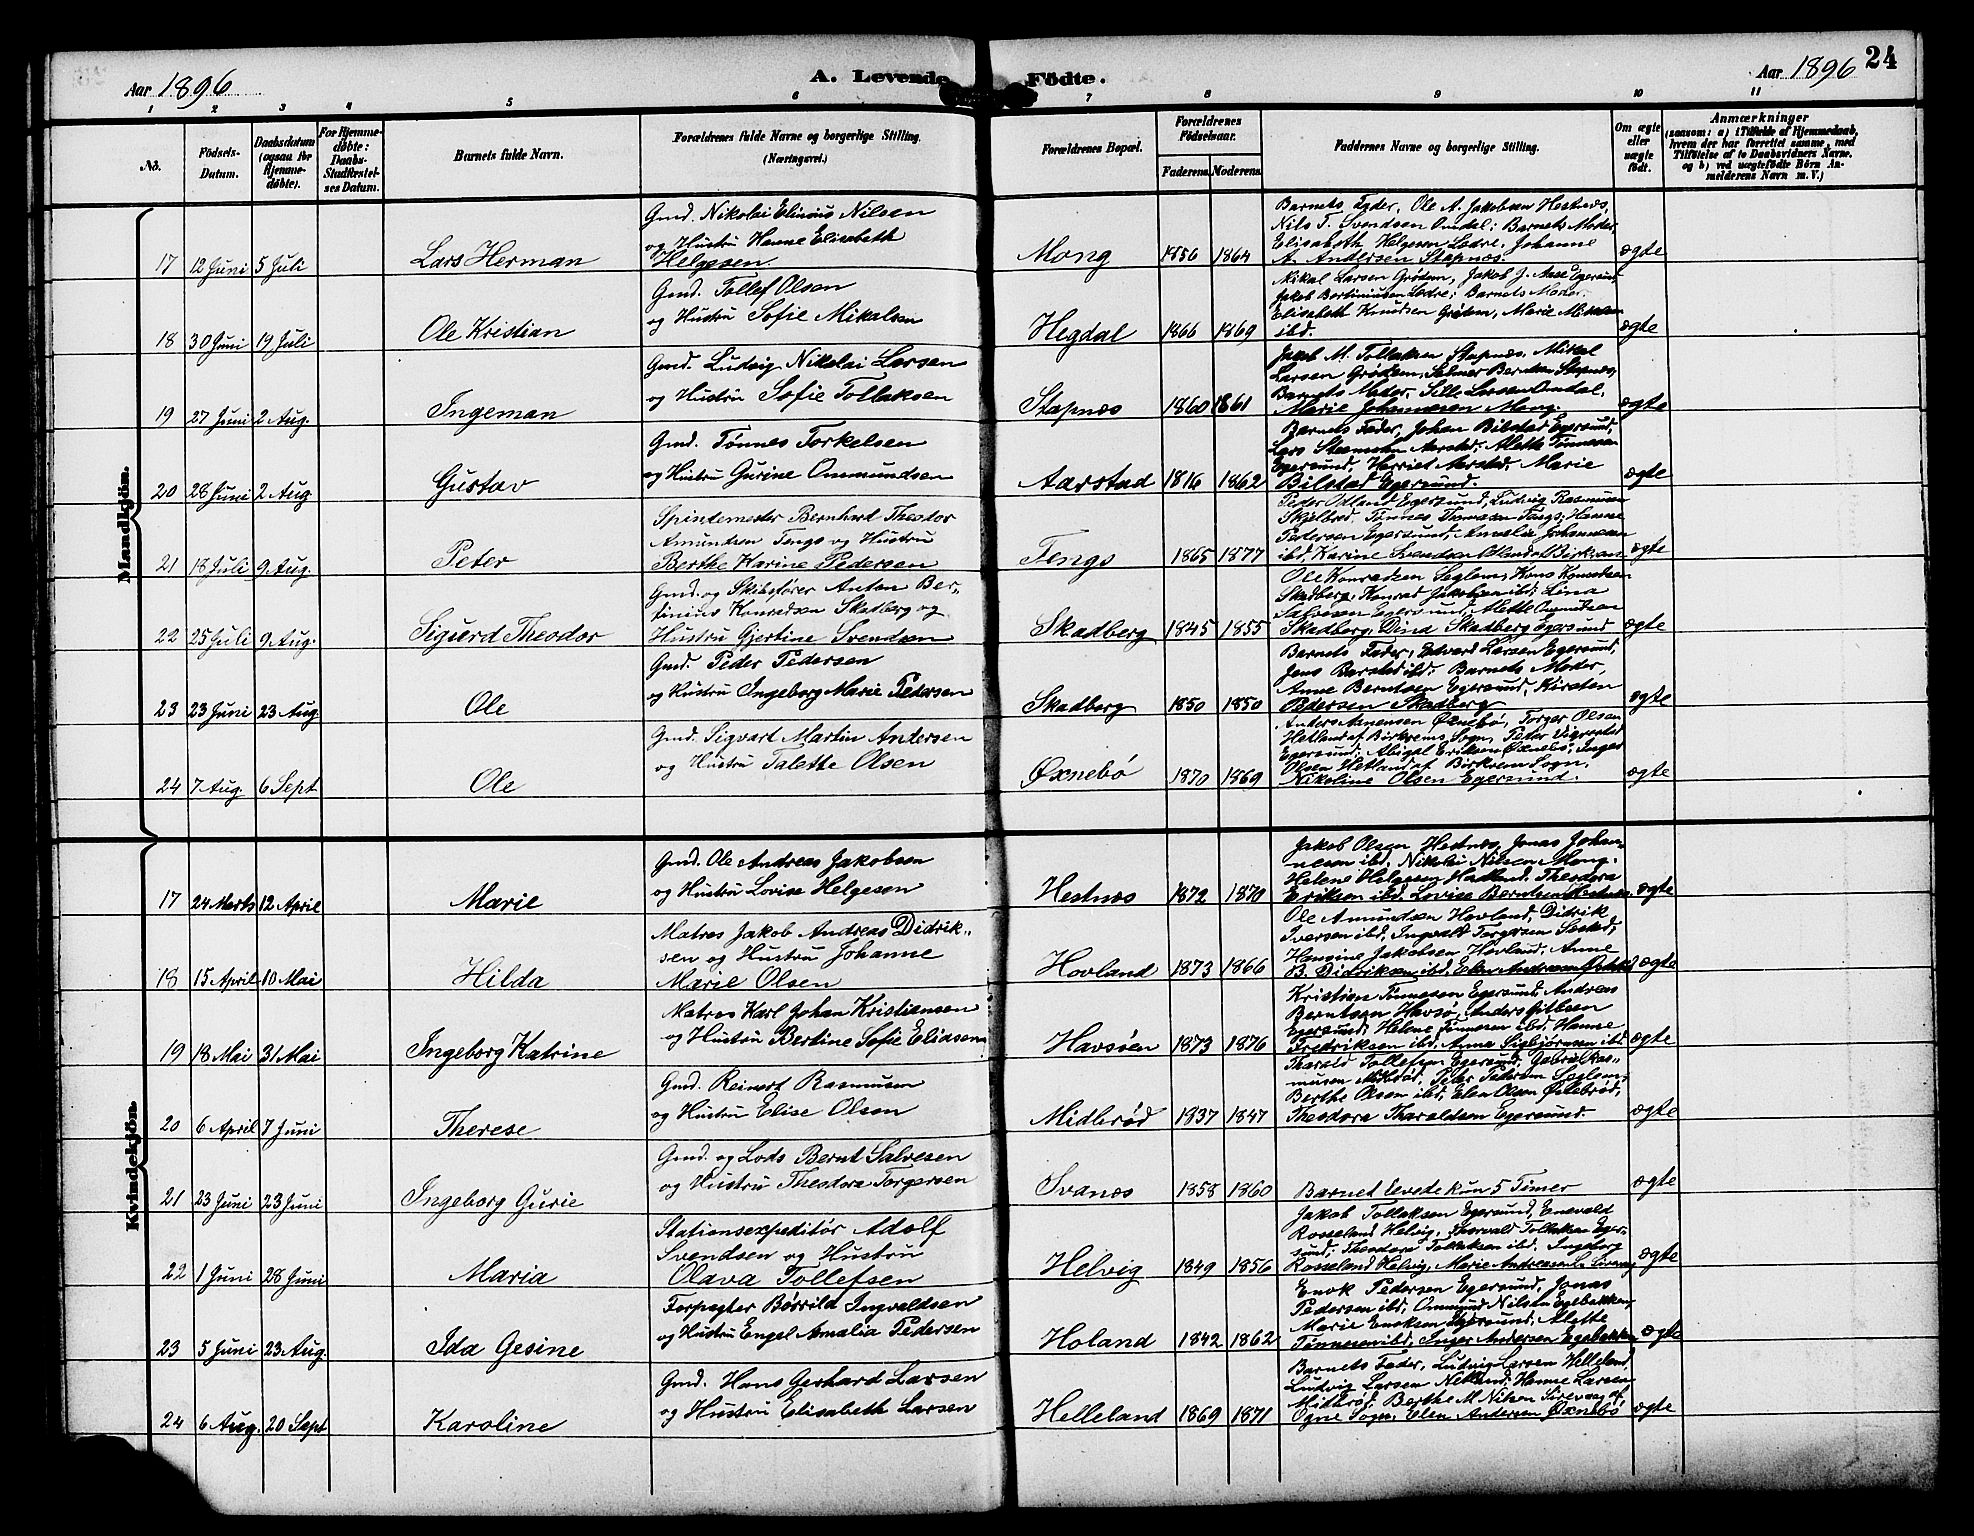 Aar 1896
A. Levende Födte.
Aar 1896
24
1 2 3 4 5 6 7 8 9 10 11
No.
Födsels-Datum.
Daabsdatum (ogsaa for Hjemmedøbte).
For Hjemmedøbte: Daabs-Stadfæstelses Datum.
Barnets fulde Navn.
Forældrenes fulde Navne og borgerlige Stilling. (Næringsvei.)
Forældrenes Bopæl.
Forældrenes Födselsaar.
Faderens. Moderens.
Faddernes Navne og borgerlige Stilling.
Om ægte eller uægte født.
Anmærkninger
(saasom: a) i Tilfælde af Hjemmedaab, hvem der har forrettet samme, med Tilföielse af to Daabsvidners Navne, og b) ved uægtefödte Börn Anmelderens Navn m. V.)
Mandkjön.
Gmd. Nikolai Elinius Nilsen
og Hustru Hanne Elisabeth
Helgesen
17 12 Juni 5 Juli Lars Herman
Mong 1856 1864
Barnets Fader, Ole A. Jakobsen Hestnæs,
Nils T. Svendsen Omdal; Barnets Moder,
Elisabeth Helgesen Lædre, Johanne
A. Andersen Stapnæs.
ægte
Gmd. Tollef Olsen
og Hustru Sofie Mikalsen
18 30 Juni 19 Juli Ole Kristian
Hegdal 1866 1869
Mikal Larsen Grødem, Jakob J. Aase Egersund,
Jakob Bertiniussen Lædre; Barnets Moder,
Elisabeth Knudsen Grødem, Marie
ibd.
ægte
Gmd. Ludvig Nikolai Larsen
og Hustru Sofie Tollaksen
19 27 Juni 2 Aug. Ingeman
Stapnæs 1860 1861
Jakob M. Tollaksen Stapnæs, Mikal
Larsen Grødem, Selmer Berntsen Stapnæs,
Barnets Moder, Sille Larsen Omdal,
Marie Johannesen Mong.
ægte
Gmd. Tønnes Torkelsen
og Hustru Gurine Ommundsen
20 28 Juni 2 Aug Gustav
Aarstad 1816 1862
Barnets Fader, Johan Bilstad Egersund,
Lars Aarstad, Alette Tønnesen
Egersund, Harriet Aarstad, Marie
Bilstad Egersund.
ægte
Spindemester Bernhard Theodor
Amundsen Tengs og Hustru
Berthe Karine Pedersen
21 18 Juli 9 Aug. Peter
Tengs 1865 1877
Peder Odland Egersund, Ludvig Rasmusen
Skjelbred, Tønnes Thomasen Tengs; Hanne
Pedersen Egersund, Amalie Johannesen
ibd, Karine Svendsen
ægte
Gmd. og Skibsfører Anton Ber-
tinius Konradsen Skadberg og
Hustru Gjertine Svendsen
22 25 Juli 9 Aug. Sigurd Theodor
Skadberg 1845 1855
Ole Konradsen Seglem, Hans Konradsen
Skadberg, Konrad Jakobsen ibd; Lina
Salvesen Egersund, Alette Omundsen
Skadberg, Dina Skadberg Egersund
ægte
Gmd. Peder Pedersen
og Hustru Ingeborg Marie Pedersen
23 23 Juni 23 Aug Ole
Skadberg 1850 1850
Barnets Fader, Edvard Larsen Egersund,
Jens Barstad ibd; Barnets Moder,
Anne Berntsen Egersund, Kirsten
Pedersen Skadberg
ægte
Gmd. Sigvart Martin Andersen
og Hustru Talette Olsen
24 7 Aug. 6 Sept Ole
Øxnebø 1870 1869
Anders Øxnebø, Torger Olsen
Hetland af Birkrems Sogn, Peter Vigrestad
Egersund; Abigal Eriksen Øxnebø, Inger
Olsen Hetland af Birkrem Sogn,
Nikoline Olsen Egersund.
ægte
Kvindekjön.
Gmd. Ole Andreas Jakobsen
og Hustru Lovise Helgesen
17 24 Marts 12 April Marie
Hestnæs 1872 1870
Jakob Olsen Hestnæs, Jonas Johan-
nesen ibd, Nikolai Nilsen Mong.
Helene Helgesen Hadland, Theodora
Eriksen ibd, Lovise Berntsen Hestnæs.
ægte
Matros Jakob Andreas Didrik-
sen og Hustru Johanne
Marie Olsen
18 15 April 10 Mai Hilda
Hovland 1873 1866
Ole Amundsen Hovland, Didrik
Iversen ibd, Ingvald Torgersen
Hansine Jakobsen Hovland, Anne
B. Didriksen ibd, Elen Andersen
ægte
Matros Karl Johan Kristiansen
og Hustru Bertine Sofie Eliasen
19 18 Mai 31 Mai Ingeborg Katrine
Havsøen 1873 1876
Kristian Tønnesen Egersund, Andreas
Berntsen Havsø, Anders Gitlesen
Egersund; Helene Tønnesen ibd, Hanne
Fredriksen ibd, Anna Sigbjørnsen ibd
ægte
Gmd. Reinert Rasmusen
og Hustru Elise Olsen
20 6 April 7 Juni Therese
Midbrød 1837 1847
Tharald Tollefsen Egersund, Gabriel Ras-
musen Midbrød, Peter Pedersen Seglem;
Berthe Olsen ibd, Elen Olsen Øxlebrød,
Theodora Tharaldsen Egersund
ægte
Gmd. og Lods Bernt Salvesen
og Hustru Theodora Torgersen
21 23 Juni 23 Juni Ingeborg Gurie
Svanæs 1858 1860
Barnet levede kun 5 Timer
ægte
Stationsexpeditør Adolf
Svendsen og Hustru
Olava Tollefsen
22 1 Juni 28 Juni Maria
Helvig 1849 1856
Jakob Tollaksen Egersund, Enevald
Rosseland Helvig, Thorvald Tollaksen Eger-
sund; Theodora Tollaksen ibd, Ingeborg
Rosseland Helvig, Marie Andreasen
ægte
Forpagter Børrild Ingvaldsen
og Hustru Engel Amalia Pedersen
23 5 Juni 23 Aug. Ida Gesine
Holand 1842 1862
Enok Pedersen Egersund, Jonas
Pedersen ibd, Ommund Nilsen Egebakken,
Marie Enoksen Egersund, Alette
Tønnesen ibd, Inger Andersen Egebakken
ægte
Gmd. Hans Gerhard Larsen
og Hustru Elisabeth Larsen
24 6 Aug. 20 Sept Karoline
Helleland 1869 1871
Barnets Fader, Ludvig Larsen Helleland,
Ludvig Larsen Netland; Hanne Larsen
Midbrød, Berthe M Nilsen Sirevaag af
Ogne Sogn, Elen Andersen Øxnebø
ægte